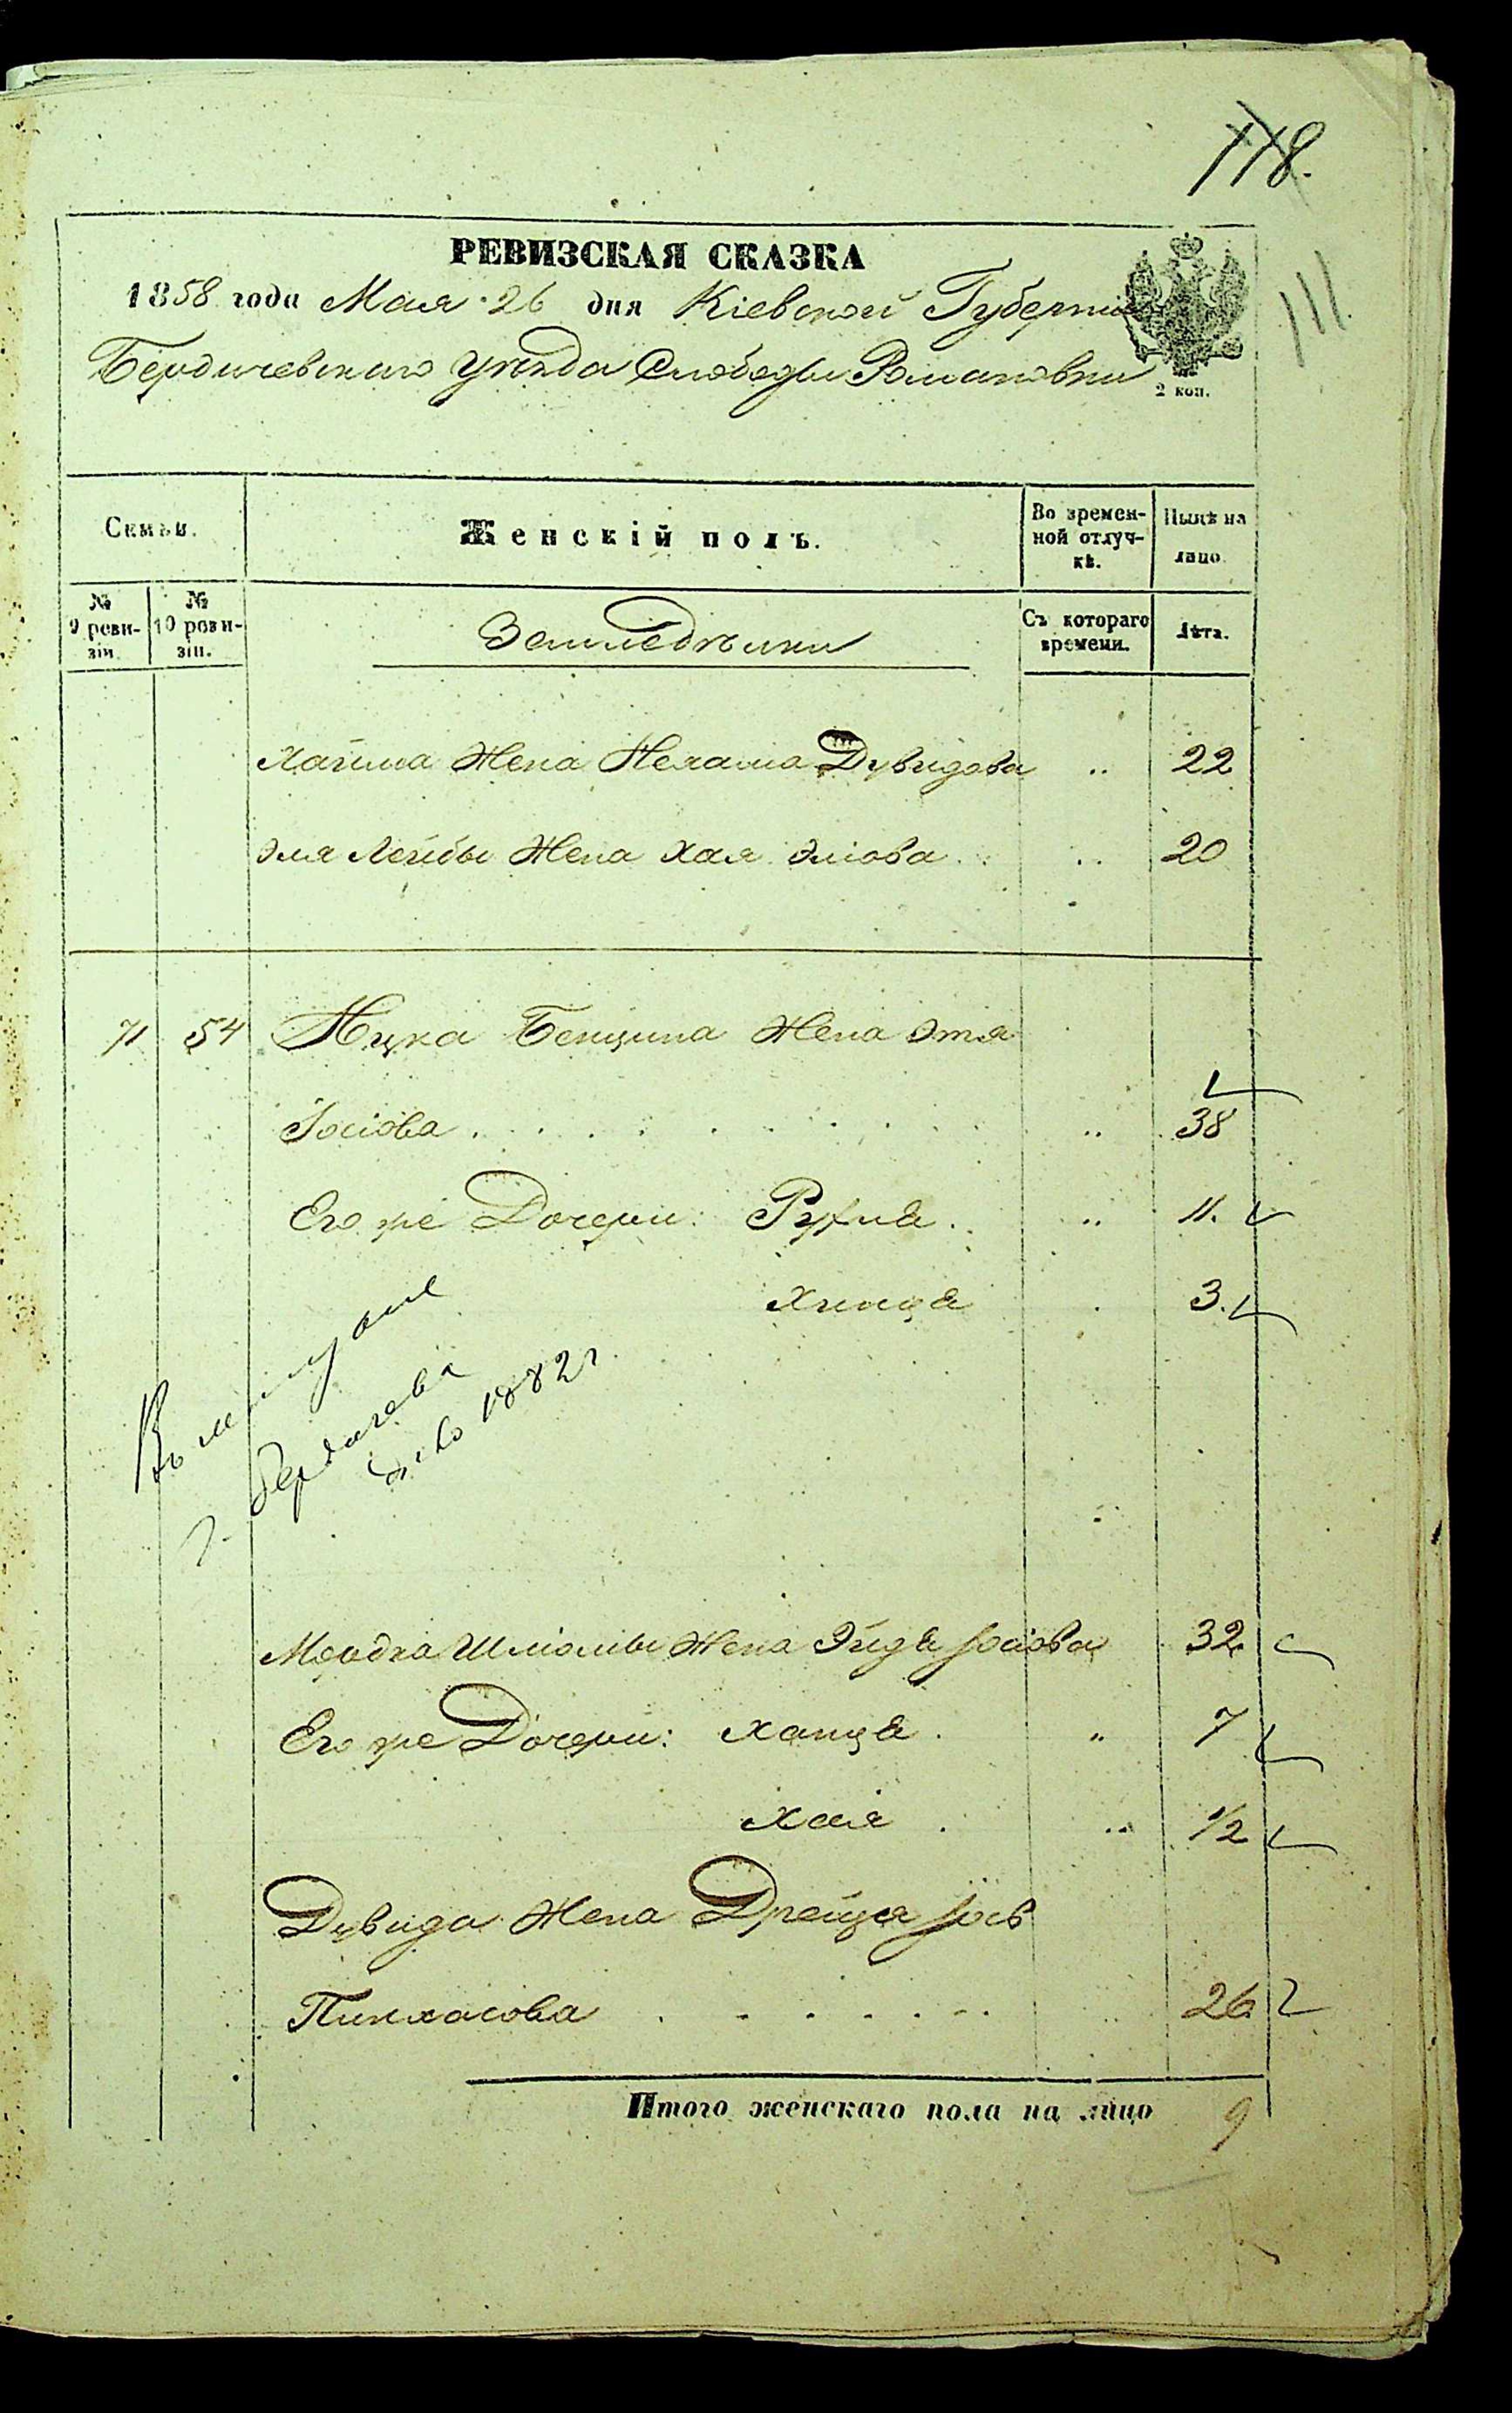 118.
111.
РЕВИЗСКАЯ СКАЗКА
1858 года Мая 26 дня Кіевской Губерніи
Бердичевскаго Уѣзда Слободы Романовки
2 коп.
Семьи. Женскій полъ. Во времен-ной отлуч-кѣ. Нынѣ на лицо.
№ 9 реви-зіи № 10 реви-зіи. Земледѣльцы Съ котораго времени. Лѣта.
Хаима Жена Нехама Дувидова .. 22
Эля Лейбы Жена Хая Эліова .. 20
71 54 Ицка Бенциона Жена Этя
Іосіова .. 38
Его же Дочери: Рухля .. 11.
Хинця 3.
г. Бердичева
1882 г.
Мордка Шліомы Жена Эйдя Іосіова 32
Его же Дочери: Ханця „ 7
Хая .. 1/2
Дувида Жена Дрейзя Іось
Пинхасова 26
Итого женскаго пола на лицо 9